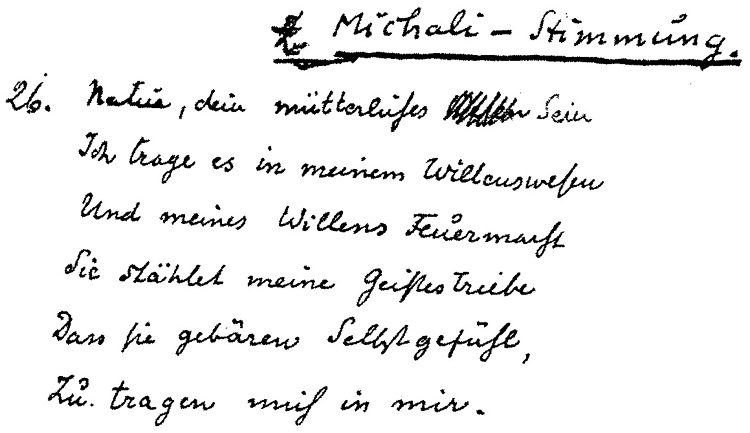 Z Michaeli-Stimmung.
26. Natur, dein mütterliches Sein
Ich trage es in meinem Willenswesen
Und meines Willens Feuermacht
Sie stählet meine Geistestriebe
Dass sie gebären Selbstgefühl,
Zu tragen mich in mir.